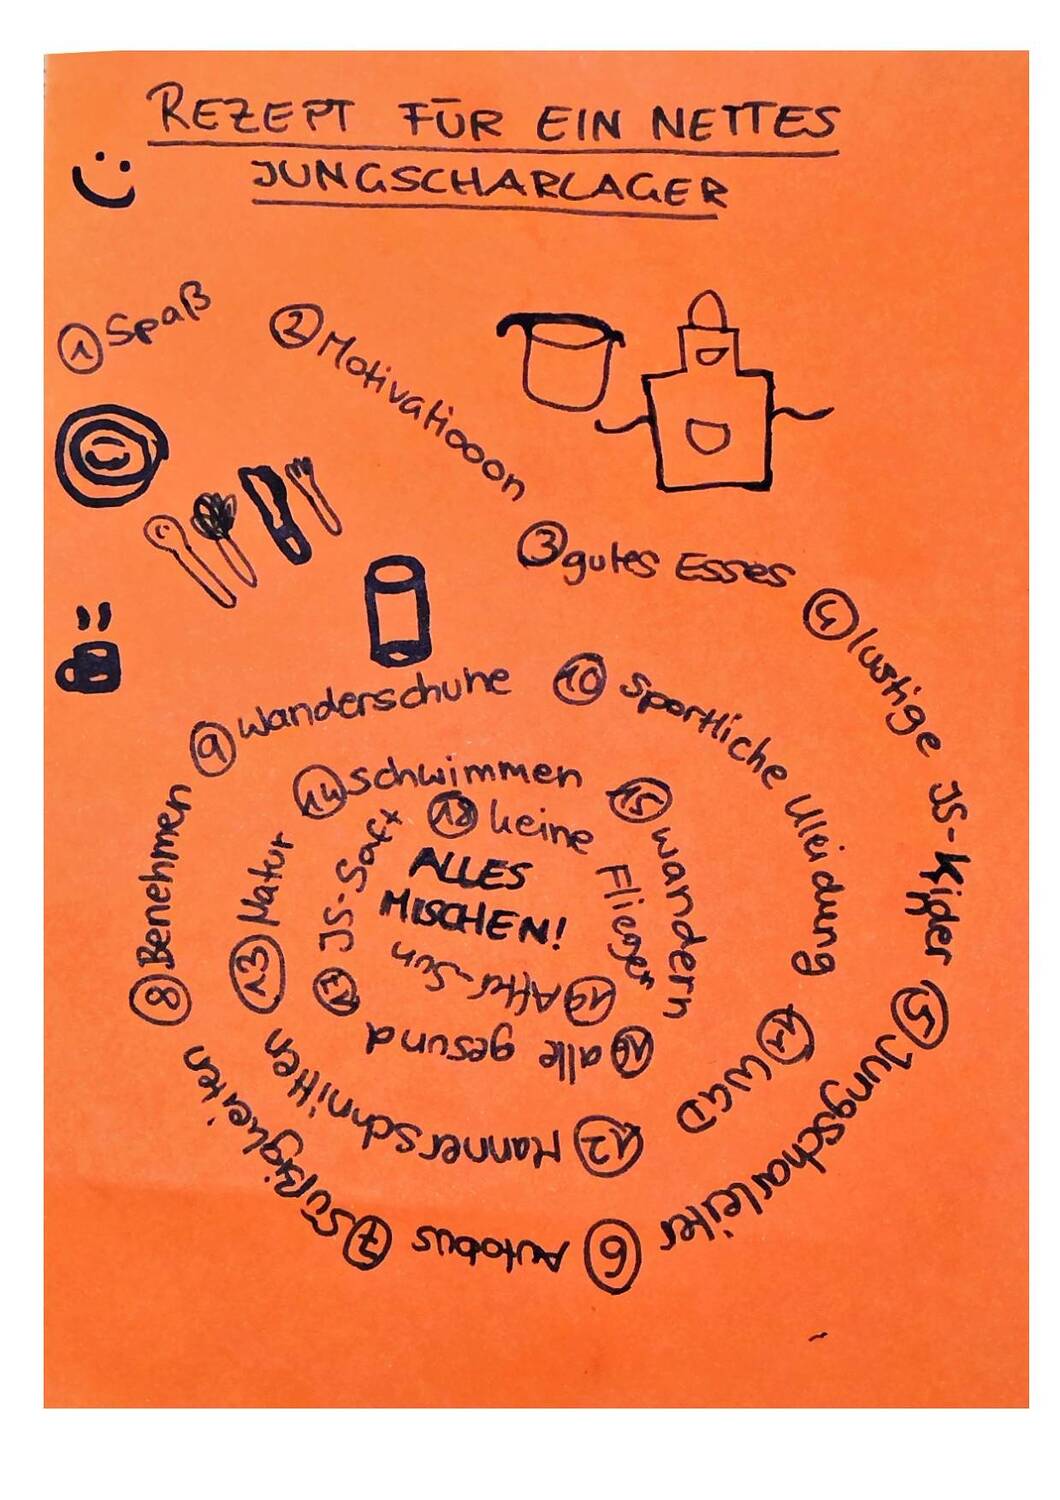 REZEPT FÜR EIN NETTES
JUNGSCHARLAGER
1 Spaß
2 Motivatiooon
3 gutes Esses
4 lustige JS-Kinder
5 Jungscharleiter
6 Autobus
7 Süßigkeiten
8 Benehmen
9 Wanderschuhe
10 Sportliche Kleidung
11 WGD
12 Mannerschnitten
13 Natur
14 schwimmen
15 wandern
16 alle gesund
17 JS-Saft
18 keine Fliegen
19 After-Sun
ALLES
MISCHEN!